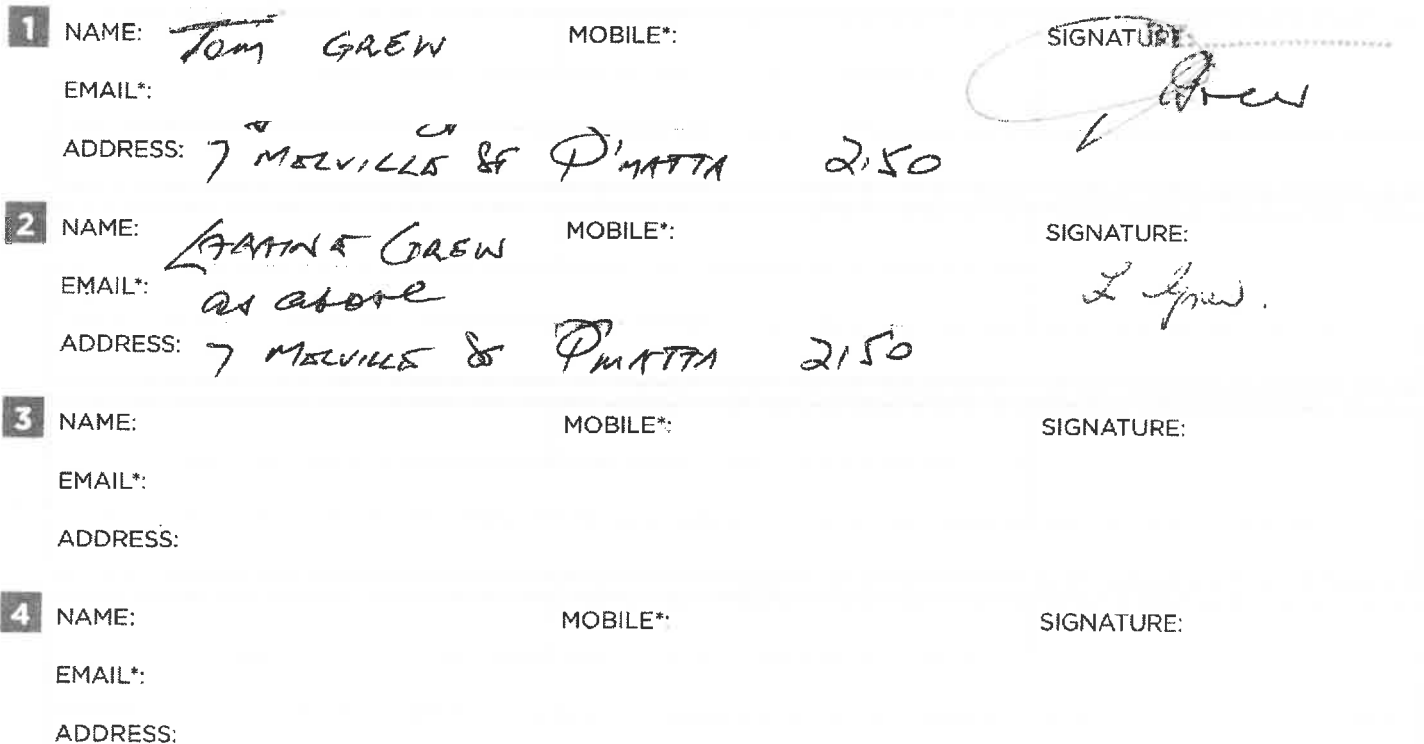 1 NAME: Tom GREW MOBILE*: SIGNATURE:
Grew
EMAIL*:
ADDRESS: 7 MELVILLE ST P'MATTA 2150
2 NAME: LARAINE GREW MOBILE*: SIGNATURE:
EMAIL*: as above L Grew.
ADDRESS: 7 MELVILLE St P'MATTA 2150
3 NAME: MOBILE*: SIGNATURE:
EMAIL*:
ADDRESS:
4 NAME: MOBILE*: SIGNATURE:
EMAIL*:
ADDRESS: